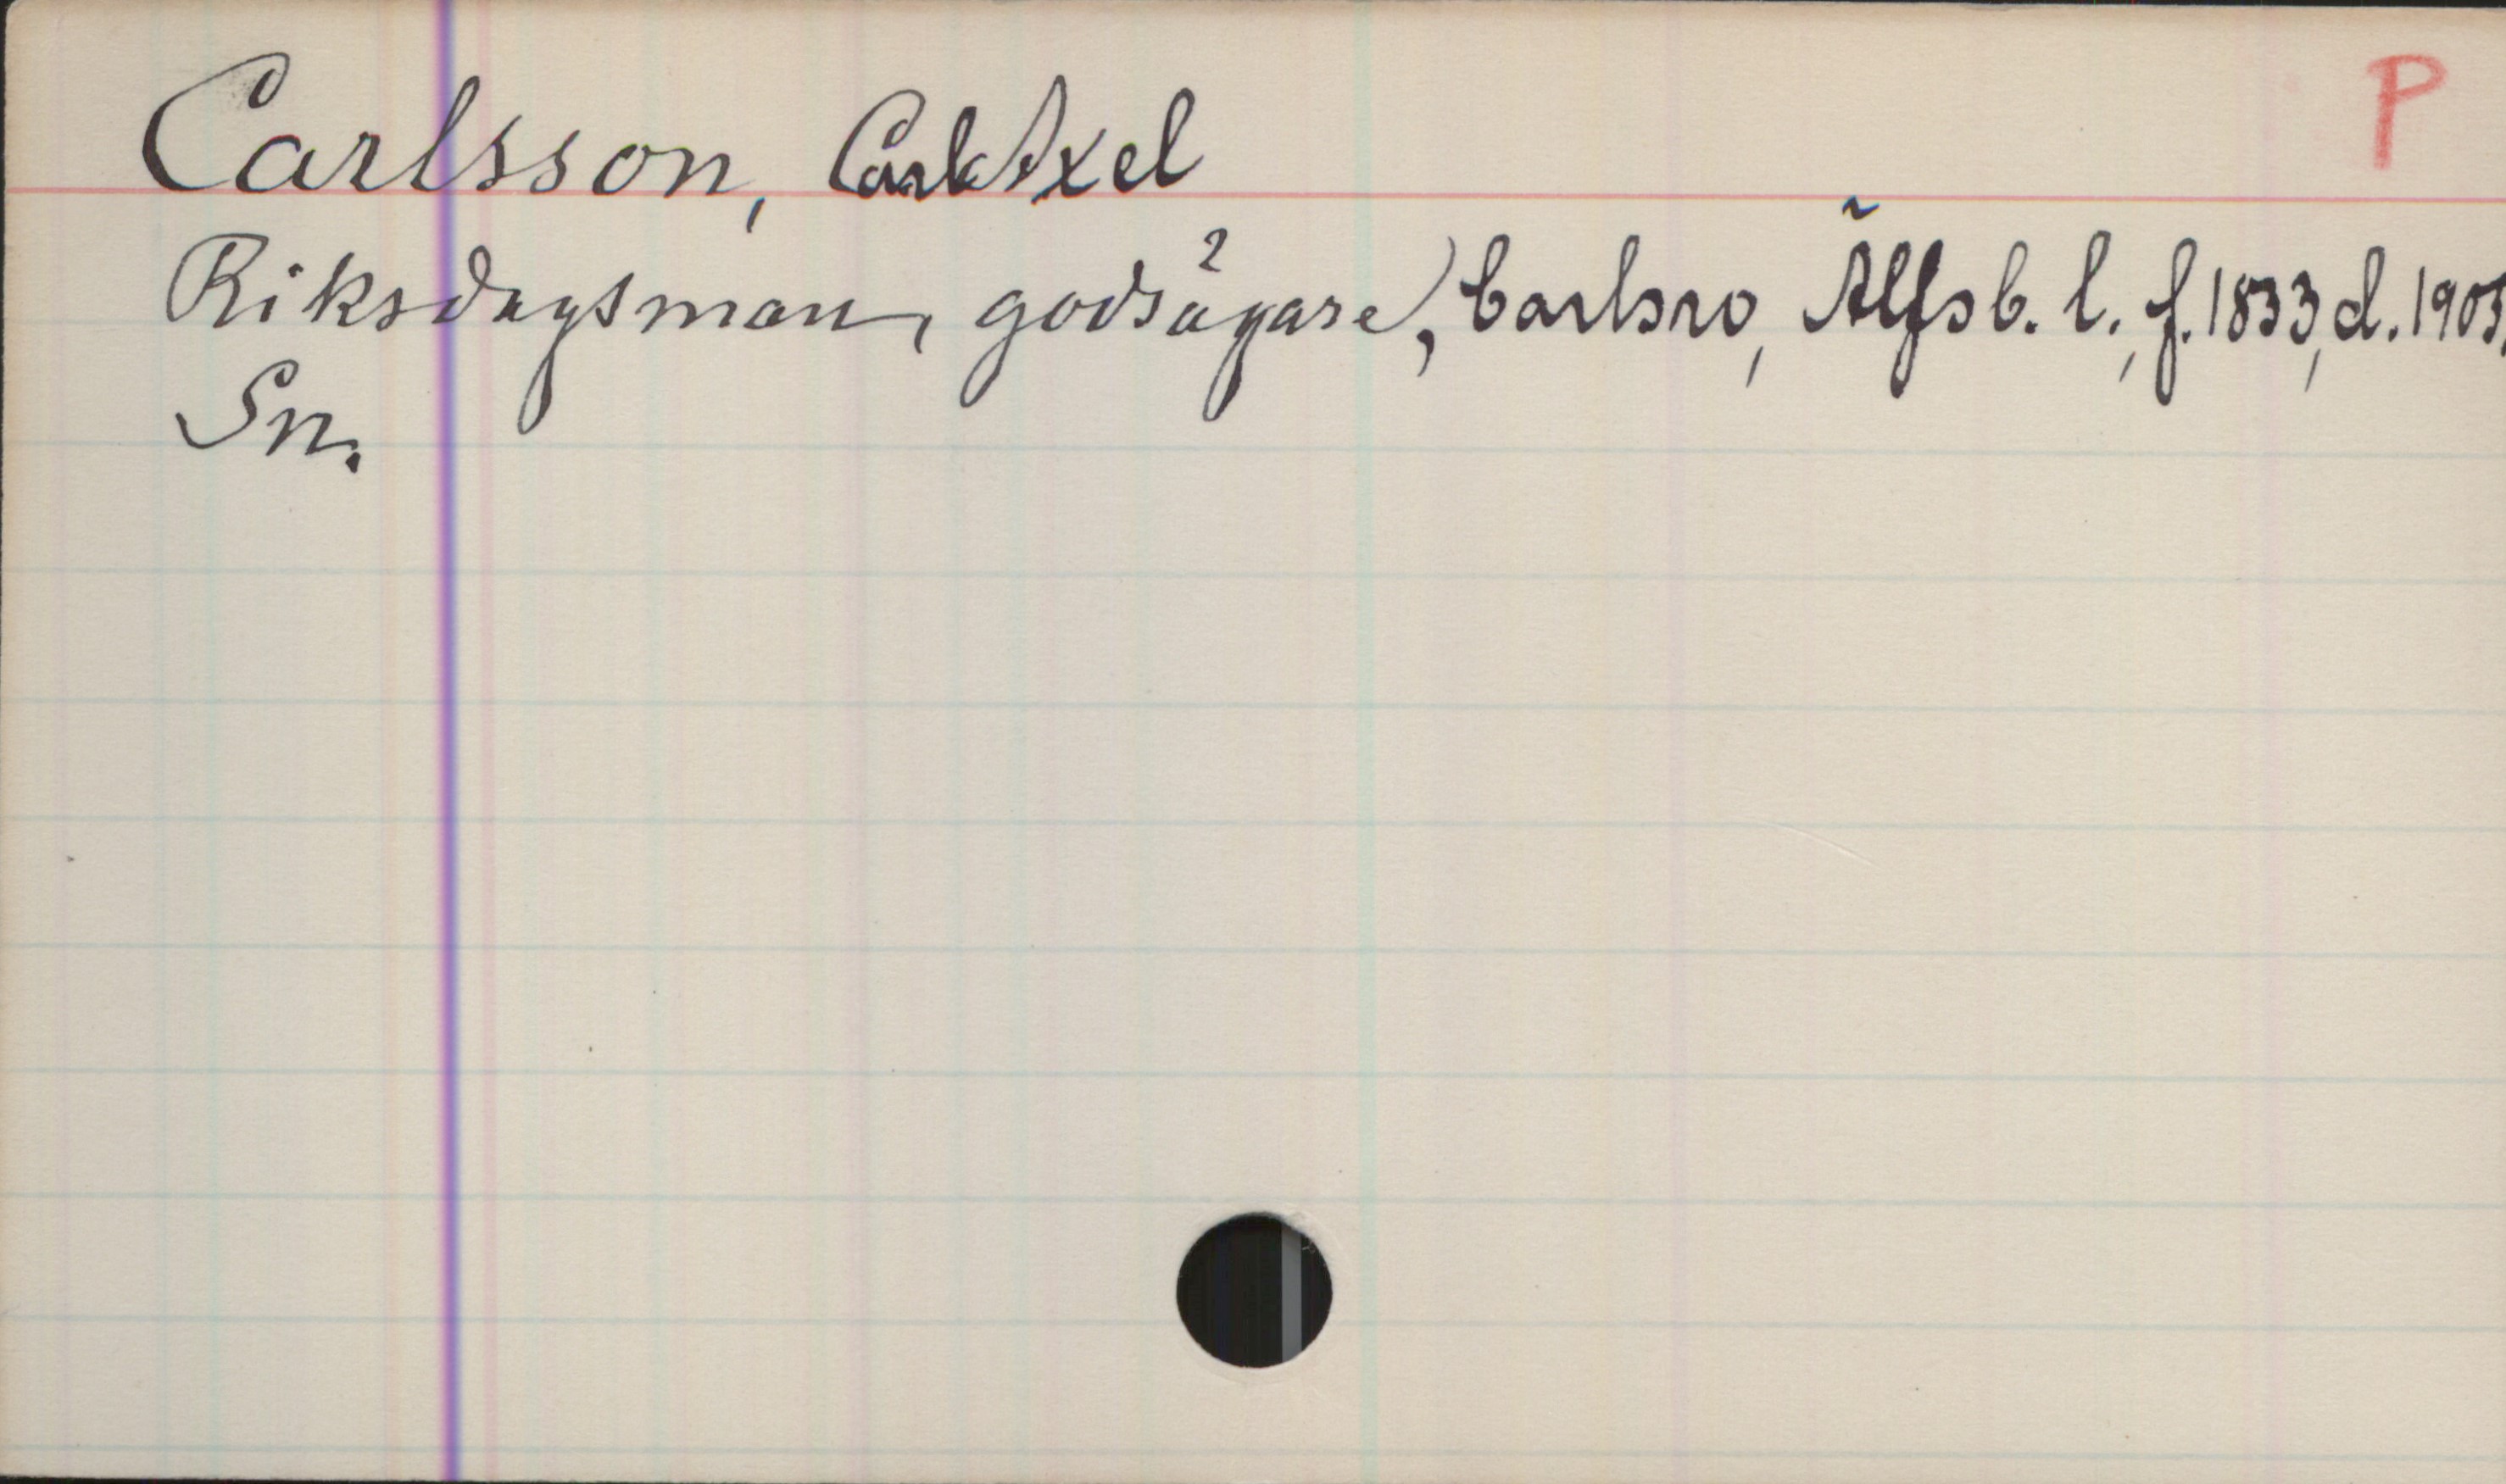 Carlsson, Carl Axel
P
Riksdagsman, godsägare, Carlsro, Älfsb. l., f. 1833, d. 1905,
Sn.